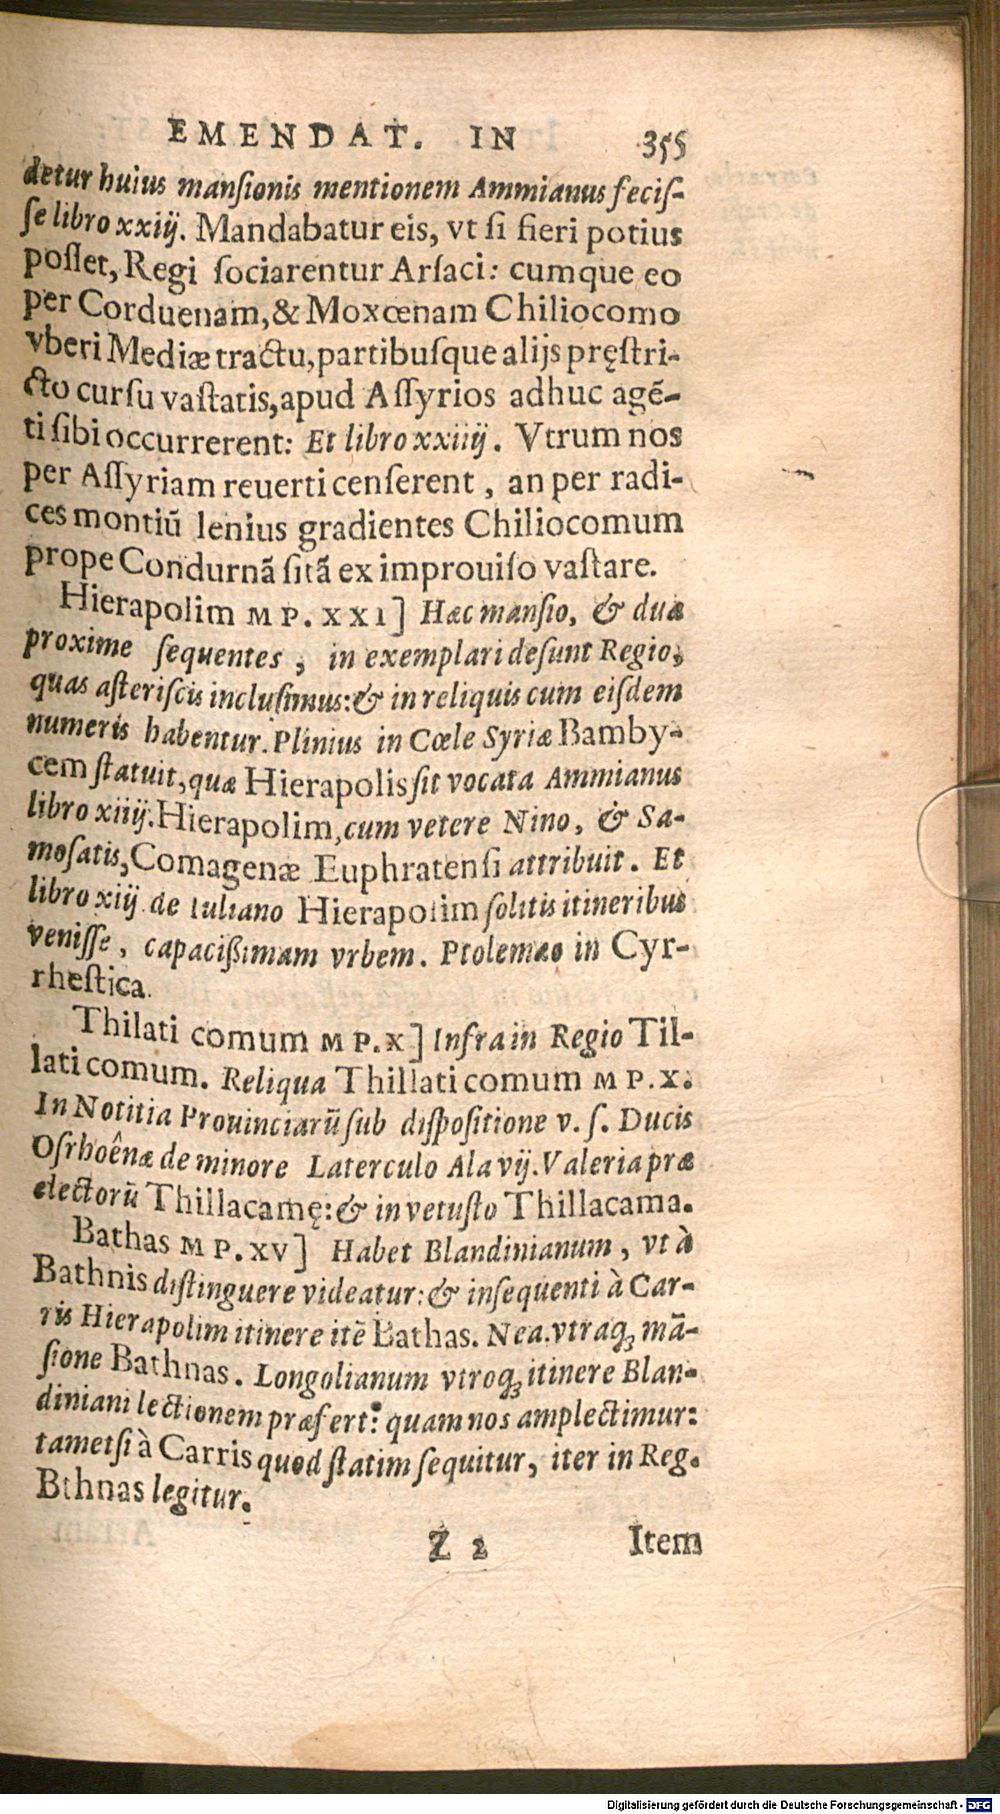 EMENDAT. IN 355
detur huius mansionis mentionem Ammianus fecis-
se libro xxiij. Mandabatur eis, vt si fieri potius
posset, Regi sociarentur Arsaci: cumque eo
per Corduenam, & Moxœnam Chiliocomo
vberi Mediæ tractu, partibusque alijs pręstri-
cto cursu vastatis, apud Assyrios adhuc agẽ-
ti sibi occurrerent: Et libro xxiiij. Vtrum nos
per Assyriam reuerti censerent, an per radi-
ces montiũ lenius gradientes Chiliocomum
prope Condurnã sitã ex improuiso vastare.
Hierapolim M P. XXI] Hæc mansio, & duæ
proxime sequentes, in exemplari desunt Regio,
quas asteriscis inclusimus: & in reliquis cum eisdem
numeris habentur. Plinius in Cœle Syriæ Bamby-
cem statuit, quæ Hierapolis sit vocata Ammianus
libro xiiij. Hierapolim, cum vetere Nino, & Sa-
mosatis, Comagenæ Euphratensi attribuit. Et
libro xiij. de Iuliano Hierapolim solitis itineribus
venisse, capacißimam vrbem. Ptolemæo in Cyr-
rhestica.
Thilati comum M P. X] Infra in Regio Til-
lati comum. Reliqua Thillati comum M P. X.
In Notitia Prouinciarũ sub dispositione v. s. Ducis
Osrhoênæ de minore Laterculo Ala vij. Valeria præ
electorũ Thillacamę: & in vetusto Thillacama.
Bathas M P. XV] Habet Blandinianum, vt à
Bathnis distinguere videatur: & insequenti à Car-
ris Hierapolim itinere itẽ Bathas. Nea. vtraq; mã-
sione Bathnas. Longolianum vtroq; itinere Blan-
diniani lectionem præfert: quam nos amplectimur:
tametsi à Carris quod statim sequitur, iter in Reg.
Bthnas legitur.
Z 2 Item
Digitalisierung gefördert durch die Deutsche Forschungsgemeinschaft - DFG